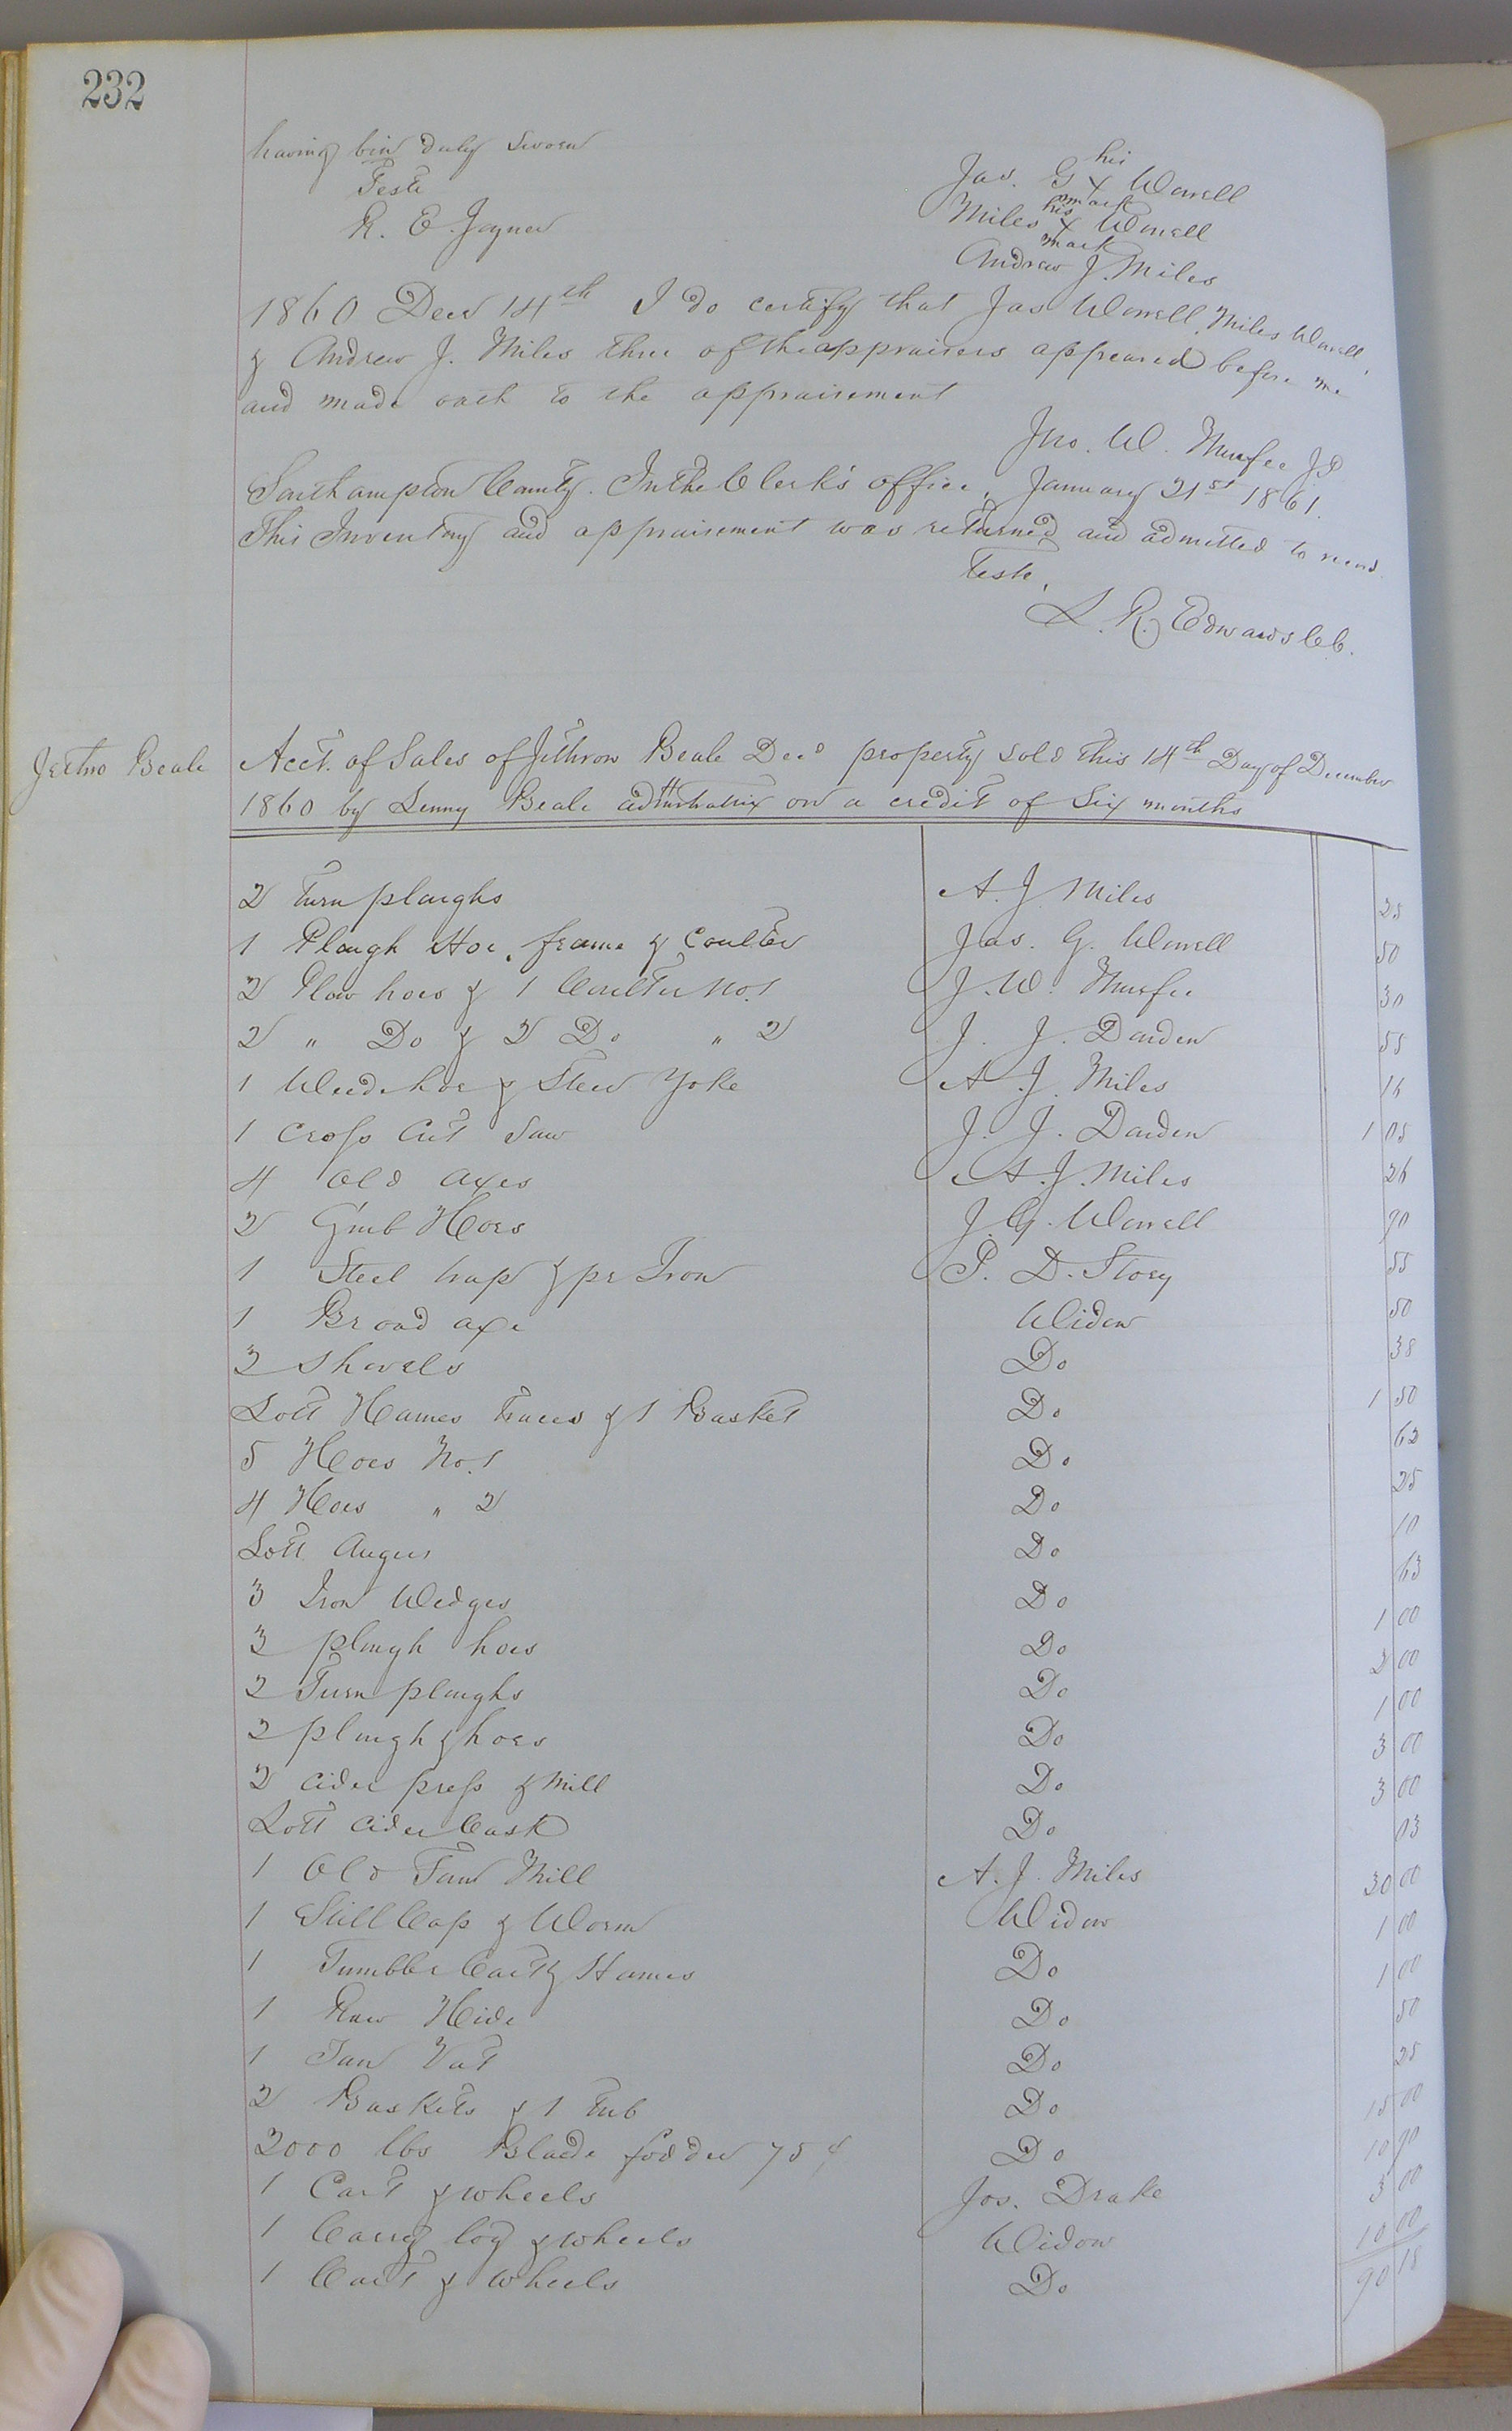 232
having bin duly Sworn
Teste
R. E. Joyner
his
Jas. G x Worrell
mark
his
Miles x Worrell
mark
Andrew J. Miles
1860 Decr 14th I do certify that Jas Worrell, Miles Worrell,
& Andrew J. Miles three of the appraisers appeared before me
and made oath to the appraisement
Jno. W. Murfee JP
Southampton County. In the Clerk's office, January 21st 1861.
This Inventory and appraisement was returned and admitted to record
Teste,
L. R. Edwards CC.
Jethro Beale
Acct. of Sales of Jethron Beale Decd property sold this 14th Day of December
1860 by Lenny Beale on a credit of Six months
2 Turn ploughs A. J. Miles 25
1 Plough Hoe, frame & Coulter Jas. G. Worrell 50
2 Plow hoes & 1 Coulter No. 1 J. W. Murfee 30
2 " Do & 2 Do " 2 J. J. Darden 55
1 Weed hoe & Steer Yoke A. J. Miles 16
1 Cross Cut Saw J. J. Darden 1 05
4 Old axes A. J. Miles 26
2 Grub Hoes J. G. Worrell 90
1 Steel trap & pr Iron P. D. Story 55
1 Broad axe Widow 50
2 Shovels Do 38
Lott Hames Traces & 1 Basket Do 1 50
5 Hoes No. 1 Do 62
4 Hoes " 2 Do 25
Lott Augers Do 10
3 Iron Wedges Do 63
3 plough hoes Do 1 00
2 Turn ploughs Do 2 00
2 plough & hoes Do 1 00
2 Cider press & Mill Do 3 00
Lott Cider Cask Do 3 00
1 Old Fan Mill A. J. Miles 03
1 Still Cap & Worm Widow 30 00
1 Tumbler Cart & Hames Do 1 00
1 Raw Hide Do 1 00
1 Tan Vat Do 50
2 Baskets & 1 tub Do 25
2000 lbs Blade fodder 75 ¢ Do 15 00
1 Cart & wheels Jos. Drake 10 90
1 Carry log & wheels Widow 3 00
1 Cart & Wheels Do 10 00
90 18